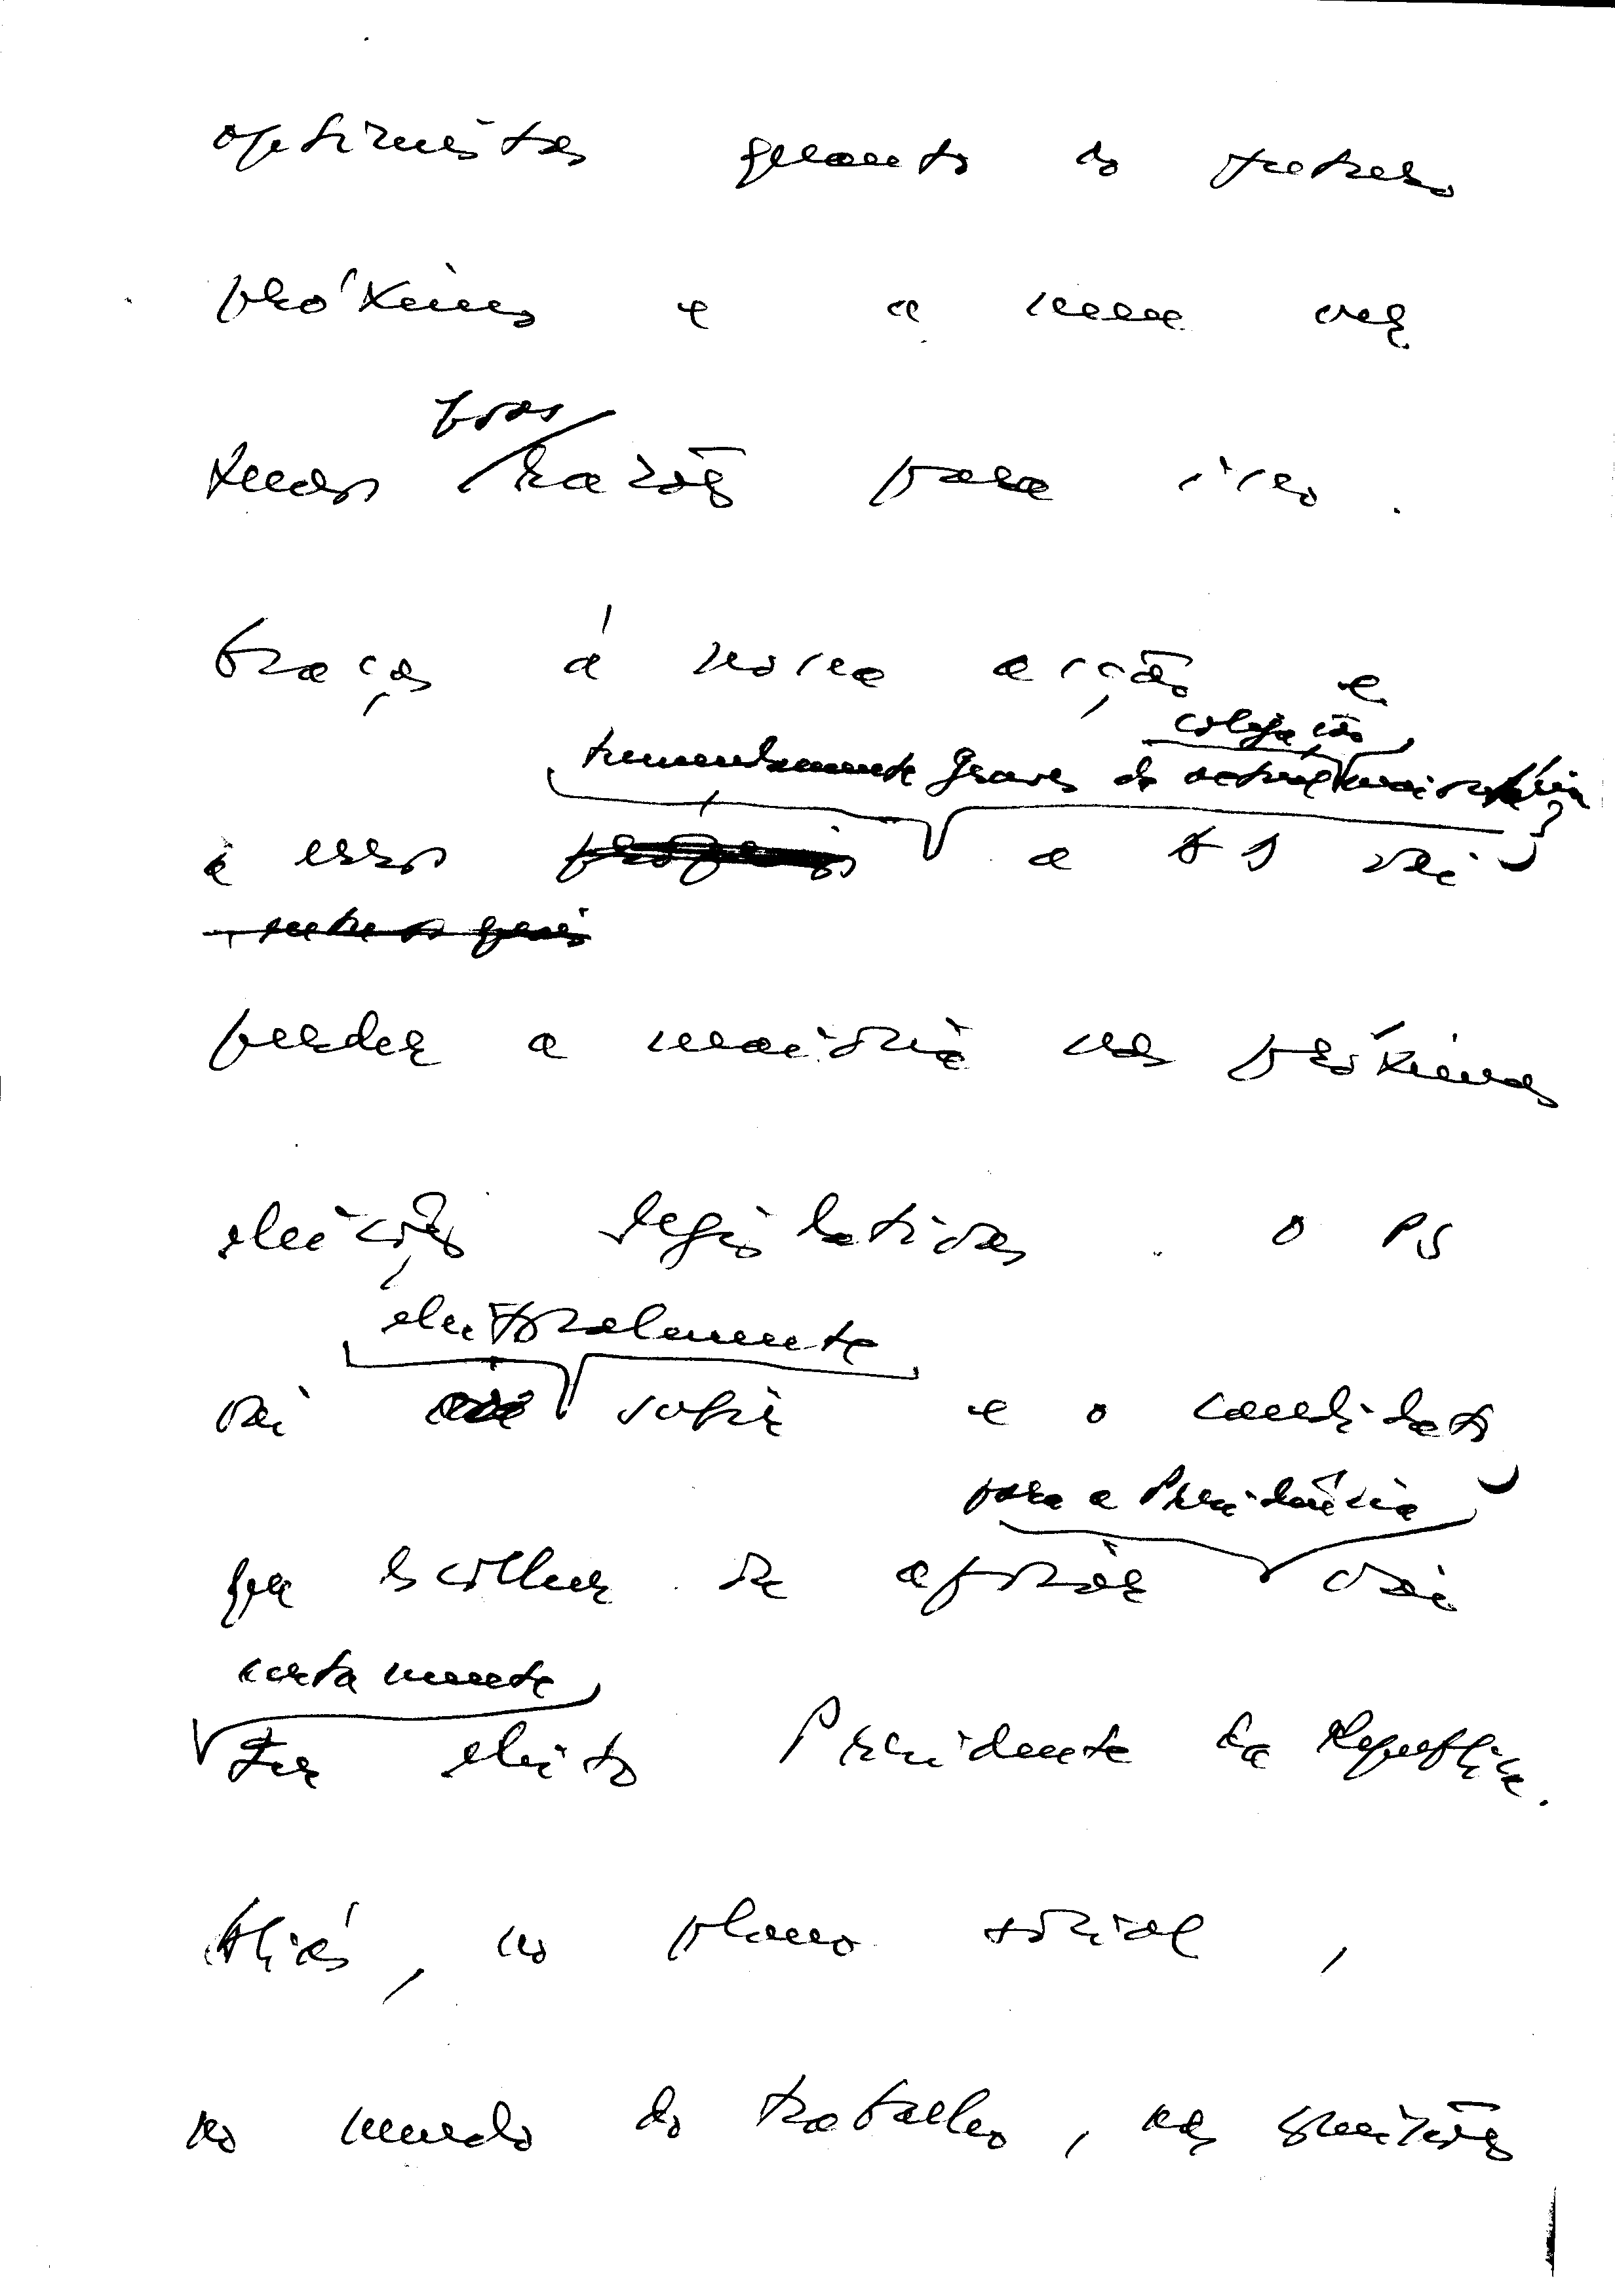 optimistas quanto ao futuro
próximo e a meu ver
temos boas razões para isso.
Graças à nossa acção e
coligação
tremendamente graves da actual maioria
a erros a AD vai
perder a maioria nas próximas
eleições legislativas. O PS
eleitoralmente
vai subir e o candidato
para a Presidência
que escolher ou apoiar vai
certamente
ser eleito Presidente da Republica.
Aliás, no plano social,
no mundo do trabalho, nas questões